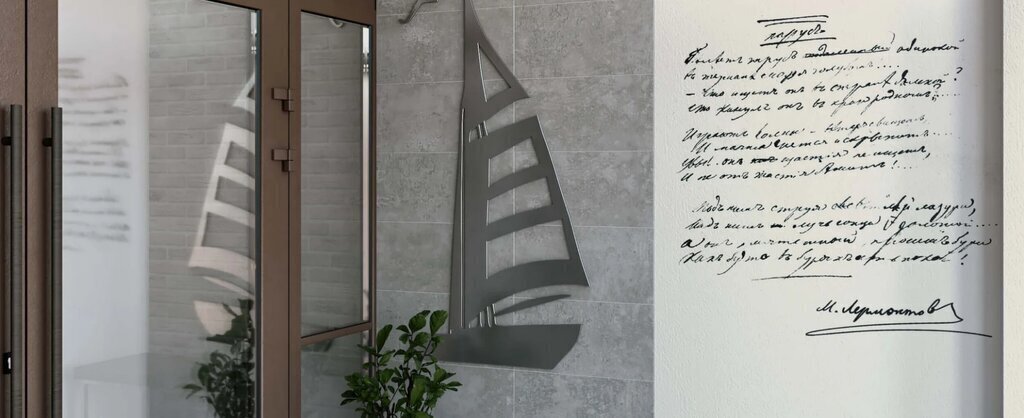 парусъ
Бѣлѣетъ парусъ одинокой
въ туманѣ моря голубомъ....
– Что ищетъ онъ въ странѣ далекой?
что кинулъ онъ въ краю родномъ?....
Играютъ волны – вѣтеръ свищетъ,
И мачта гнется и скрыпитъ....
Увы! онъ щастія не ищетъ,
И не отъ щастія бѣжитъ!...
Подъ нимъ струя свѣтлѣй лазури,
Надъ нимъ лучь солнца золотой....
а онъ, мятежный, проситъ бури
Какъ будто въ буряхъ есть покой!
М. Лермонтовъ